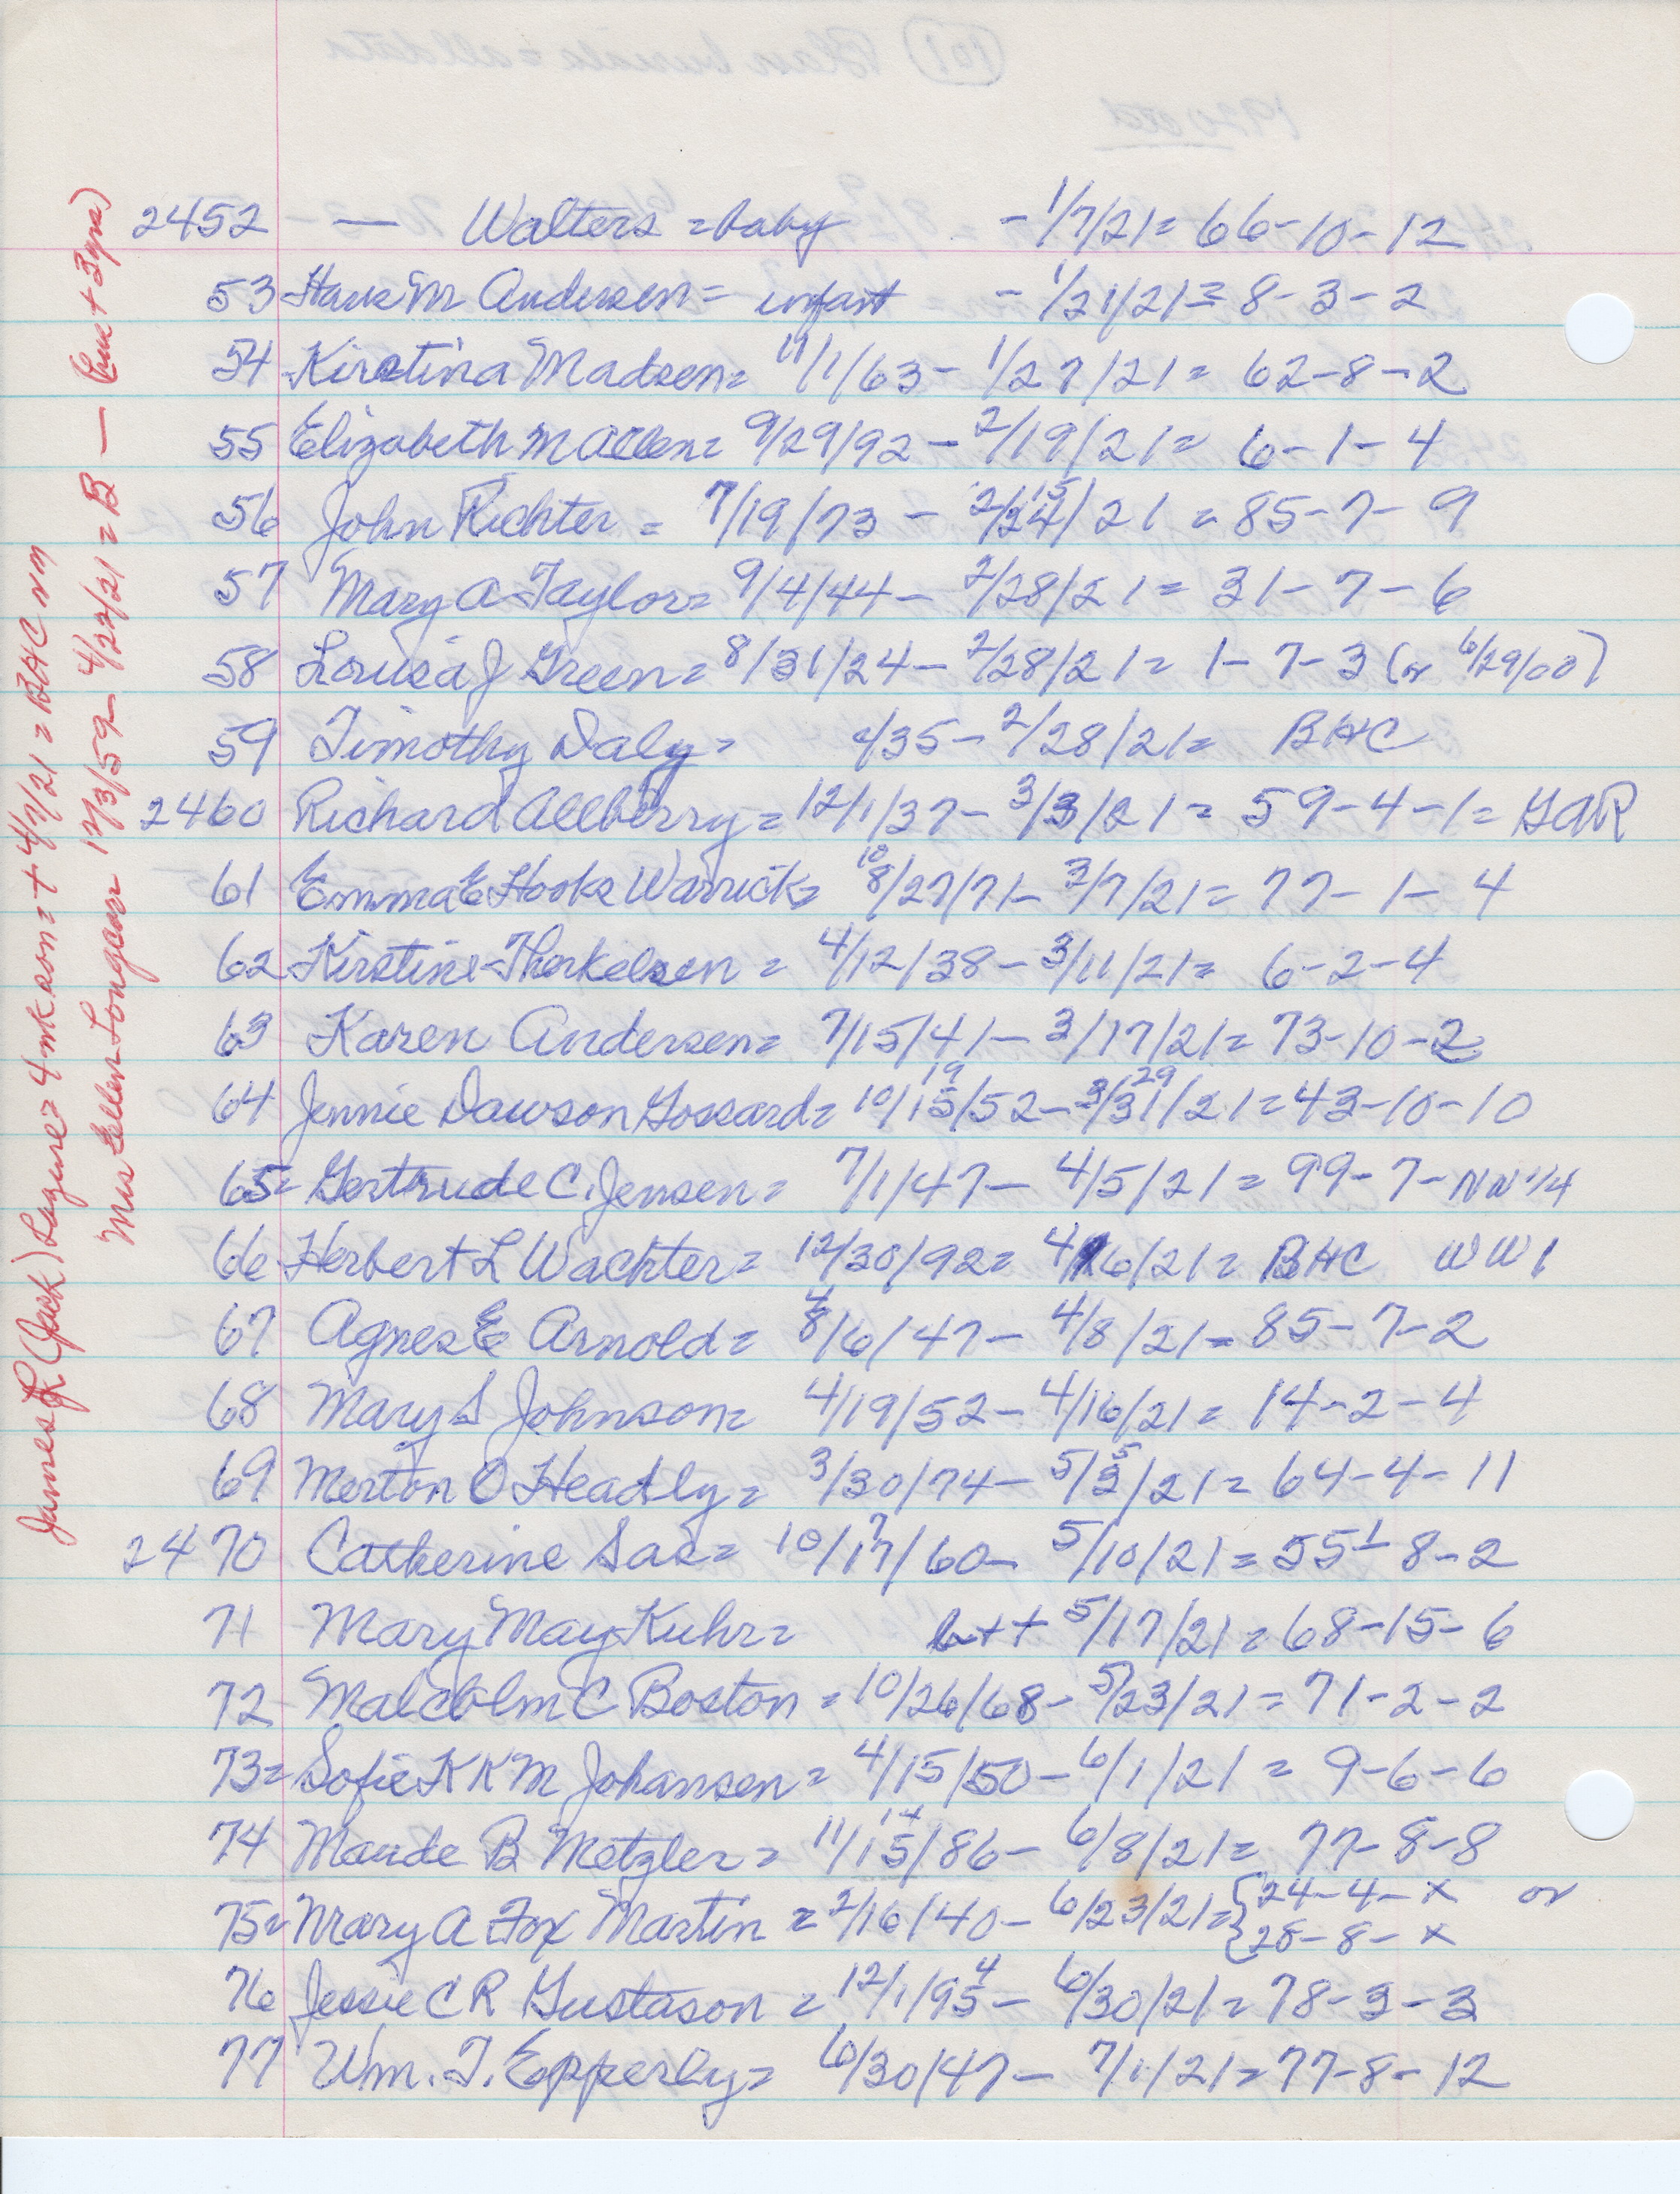 2452 — Walters = baby - 1/7/21 = 66-10-12
53 Hans M Andersen = infant - 1/21/21 = 8-3-2
54 Kirstina Madsen = 11/1/63 - 1/27/21 = 62-8-2
55 Elizabeth M Allen = 9/29/92 - 2/19/21 = 6-1-4
15
56 John Richter = 7/19/73 - 2/24/21 = 85-7-9
57 Mary A Taylor = 9/4/44 - 2/28/21 = 31-7-6
58 Louisa J Green = 8/31/24 - 2/28/21 = 1-7-3 (or 6/29/00)
59 Timothy Daly = c/35 - 2/28/21 = BHC
2460 Richard Allberry = 12/1/37 - 3/3/21 = 59-4-1 = GAR
10
61 Emma E Hooks Warrick = 8/27/71 - 3/7/21 = 77-1-4
62 Kirstine Therkelsen = 4/12/38 - 3/11/21 = 6-2-4
63 Karen Andersen = 7/15/41 - 3/17/21 = 73-10-2
19 29
64 Jennie Dawson Gossard = 10/15/52 - 3/31/21 = 43-10-10
65 = Gertrude C. Jensen = 7/1/47 - 4/5/21 = 99-7-NW 1/4
66 Herbert L Wachter = 12/30/92 = 4/6/21 = BHC WW1
4
67 Agnes E Arnold = 8/6/47 - 4/8/21 = 85-7-2
68 Mary S Johnson = 4/19/52 - 4/16/21 = 14-2-4
5
69 Merton O Headly = 3/30/74 - 5/3/21 = 64-4-11
7 1
2470 Catherine Sas = 10/17/60 - 5/10/21 = 55-8-2
71 Mary May Kuhr = b++ 5/17/21 = 68-15-6
72 Malcolm C Boston = 10/26/68 - 5/23/21 = 71-2-2
73 = Sofie K K M Johansen = 4/15/50 - 6/1/21 = 9-6-6
14
74 Maude B Metzler = 11/15/86 - 6/8/21 = 77-8-8
75 = Mary A Fox Martin = 2/16/40 - 6/23/21 = {24-4-x or
{28-8-x
4
76 Jessie C R Gustason = 12/1/95 - 6/30/21 = 78-3-3
77 Wm. T. Epperly = 6/30/47 - 7/1/21 = 77-8-12
James R (Jack) Lagure = 4 mk son = + 4/7/21 = BHC nm
Mrs Ellen Longcor 12/3/59 - 4/22/21 = B — (here + 3 yrs)